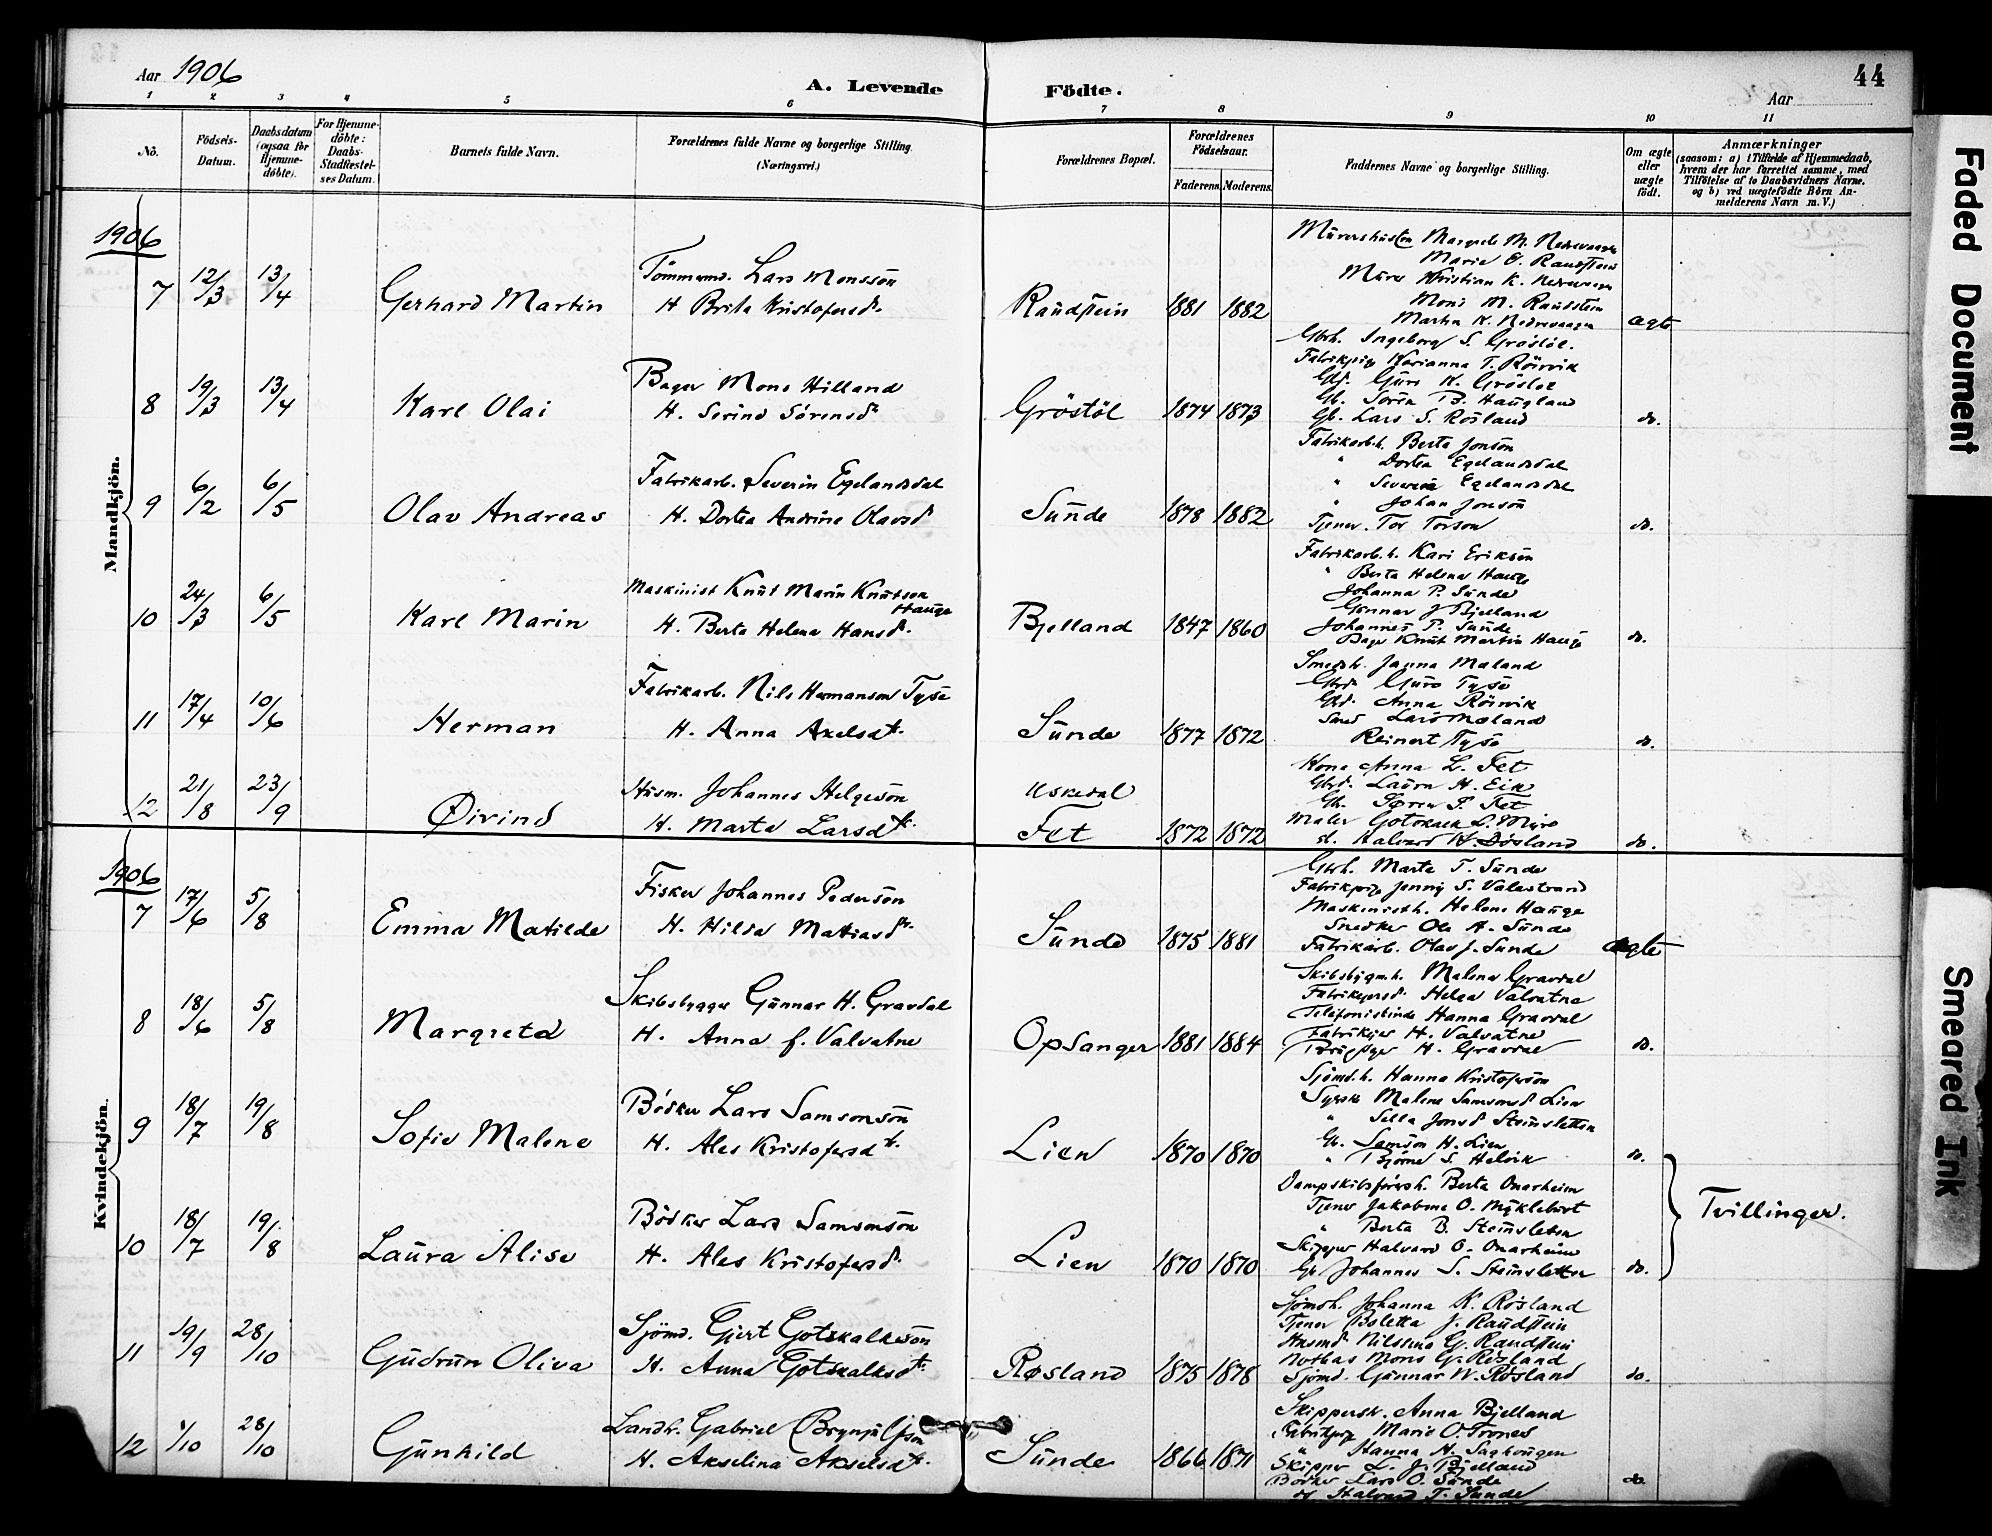 Aar 1906
A. Levende Födte.
44
Aar
1 2 3 4 5 6 7 8 9 10 11
No.
Födsels-Datum.
Daabsdatum (ogsaa for Hjemme-döbte).
For Hjemme-döbte: Daabs-Stadfestel-ses Datum.
Barnets fulde Navn.
Forældrenes fulde Navne og borgerlige Stilling. (Næringsvei.)
Forældrenes Bopæl.
Forældrenes Födselsaar.
Faderens. Moderens.
Faddernes Navne og borgerlige Stilling.
Om ægte eller uægte födt.
Anmærkninger
(saasom: a) i Tilfælde af Hjemmedaab, hvem der har forrettet samme, med Tilföielse af to Daabsvidners Navne. og b) ved uægtefödte Börn An-melderens Navn m. V.)
Mandkjön.
1906
7 12/3 13/4 Gerhard Martin
Tömmermd. Lars Monssön
H. Brita Kristofersd.
Raudstein 1881 1882
Marie O. Raudstein
Murer Kristian K. Nedrevaage
Mons M. Raudstein
Martin K. Nedrevaage
ægte
8 19/3 13/4 Karl Olai
Bager Mons Hilland
H. Serine Sörensd.
Gröstöl 1874 1873
Gbrh. Ingeborg S. Gröstöl.
Fabrikpige Marianna T. Röirvik
Gbd. Guro K. Gröstöl
Gb. Sören B. Haugland
Gb. Lars S. Rösland
do.
9 6/2 6/5 Olav Andreas
Fabrikarb. Severin Egelandsdal
H. Dortea Andrine Olavsd
Sunde 1878 1882
Fabrikarb.h. Berta Jonsön
" Dortea Egelandsdal
" Severin Egelandsdal
" Johan Jonsön
Tjener Tor Torson
do.
10 24/3 6/5 Karl Marin
Maskinist Knut Marin Knutson Hauge
H. Berta Helena Hansd.
Bjelland 1847 1860
Fabrikarb.h. Kari Eriksön
" Berta Helena Hauge
Johanna P. Sunde
Gunnar J Bjelland
Johannes P. Sunde
Bager Knut Martin Hauge
do.
11 17/4 10/6 Herman
Fabrikarb. Nils Hermanson Tyse
H. Anna Axelsdt.
Sunde 1877 1872
Smedh. Janna Maland
Gbd. Guro Tyse
Gbd. Anna Röirvik
Smed Lars Mæland
Reinert Tyse
do.
12 21/8 23/9 Øivind
Husm. Johannes Helgesön
H. Marta Larsdt.
Uskedal
Fet 1872 1872
Kona Anna L. Fet
Gbd. Laura H. Eik
Gb. Sören P. Fet
Maler Gotskalk L. Myro
d. Halvard H. Døsland
do.
Kvindekjön.
1906
7 17/6 5/8 Emma Matilde
Fisker Johannes Pedersön
H. Hilda Matiasdt.
Sunde 1875 1881
Gbrh. Marta T. Sunde
Fabrikpige Jenny S. Valestrand
Maskinisth. Helene Hauge
Snedker Ole A. Sunde
Fabrikarb. Olav J. Sunde
ægte
8 18/6 5/8 Margreta
Skibsbygger Gunnar H. Gravdal
H. Anna f. Valvatne
Opsanger 1881 1884
Skibsbygm.h. Malena Gravdal
Fabrikeiersd. Helga Valvatne
Telefonistinde Hanna Gravdal
Fabrikeier H. Valvatne
H. Gravdal
do.
9 18/7 19/8 Sofie Malene
Bödker Lars Samsonsön
H. Ales Kristofersdt.
Lien 1870 1870
Sjömd.h. Hanna Kristofersön
Syerske Malene Samsonsd Lien
" Sella Jonsd Steinsletten
Gb. Samson H. Lien
" Björne S. Helvik
do.
10 18/7 19/8 Laura Alise
Bödker Lars Samsonsön
H. Ales Kristofersd.
Lien 1870 1870
Dampskibsförersh. Berta Onarheim
Tjener Jakobine O. Myklebust
" Berta B. Steinsletten
Skipper Halvard O. Onarheim
Gb. Johannes S. Steinsletten
do.
Tvillinger.
11 19/9 28/10 Gudrun Oliva
Sjömd. Gjert Gotskalksön
H. Anna Gotskalksdt.
Røsland 1875 1878
Sjömdh. Johanna K. Røsland
Tjener Boletta J. Raudstein
Husmd. Nilsina G. Raudstein
Mons G. Røsland
Sjömd. Gunnar N. Røsland
do.
12 1/10 28/10 Gunhild
Landh. Gabriel Brynjulfson
H. Akselina Akselsdt.
Sunde 1866 1871
Skippersk. Anna Bjelland
Fabrikpige Marie O. Trones
" Hanna A. Saghougen
Skipper L. J. Bjelland
Bödker Lars O. Sunde
og Halvard T. Sunde
do.
Faded Document
Smeared Ink